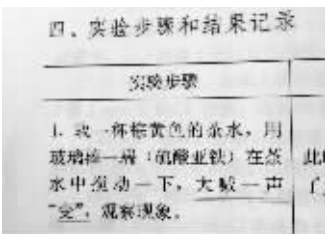 四、实验步骤和结果记录
实验步骤
1. 取一杯棕黄色的茶水，用
玻璃棒一端（硫酸亚铁）在茶
水中搅动一下，大喊一声
“变”，观察现象。
此时